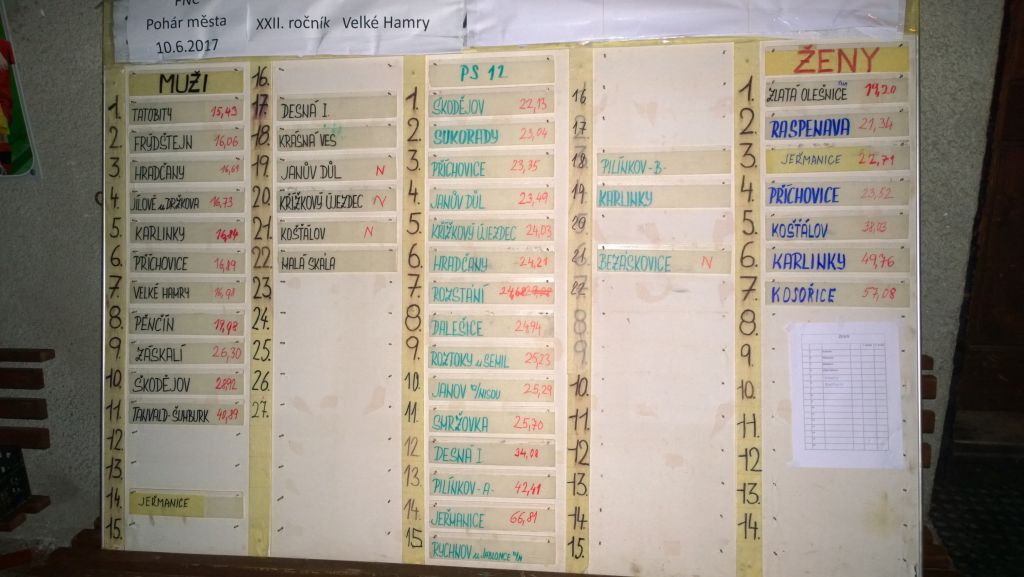 Pohár města XXII. ročník Velké Hamry
10.6.2017
MUŽI
1. TATOBITY 15,43
2. FRÝDŠTEJN 16,06
3. HRADČANY 16,61
4. JÍLOVÉ u DRŽKOVA 16,73
5. KARLINKY 16,84
6. PŘÍCHOVICE 16,89
7. VELKÉ HAMRY 16,98
8. PĚNČÍN
9. ZÁSKALÍ 26,30
10. ŠKODĚJOV 28,92
11. TANVALD-ŠUMBURK 40,89
12.
13.
14. JEŘMANICE
15.
16.
17. DESNÁ I.
18. KRÁSNÁ VES
19. JANŮV DŮL N
20. KŘÍŽKOVÝ ÚJEZDEC N
21. KOŠŤÁLOV N
22. MALÁ SKÁLA
23.
24.
25.
26.
27.
PS 12
1. ŠKODĚJOV 22,13
2. SUKORADY 23,04
3. PŘÍCHOVICE 23,35
4. JANŮV DŮL 23,49
5. KŘÍŽKOVÝ ÚJEZDEC 24,03
6. HRADČANY 24,21
7. ROZSTÁNÍ 24,68
8. DALEŠICE 24,94
9. ROZTOKY u SEMIL 25,23
10. JANOV n/NISOU 25,29
11. SMRŽOVKA 25,70
12 DESNÁ I 34,08
13. PILÍNKOV-A- 42,41
14. JEŘMANICE 66,81
15 RYCHNOV u JABLONCE n/N
16
17
18 PILÍNKOV-B-
19. KARLINKY
20
21 BEZÁSKOVICE N
22
8.
9.
10.
11.
12.
13.
14.
15.
ŽENY
1. ZLATÁ OLEŠNICE
2. RASPENAVA 21,34
3. JEŘMANICE 22,71
4. PŘÍCHOVICE 23,52
5. KOŠŤÁLOV 38,03
6. KARLINKY 49,76
7. KOSOŘICE 57,08
8.
9.
10.
11.
12.
13.
14.